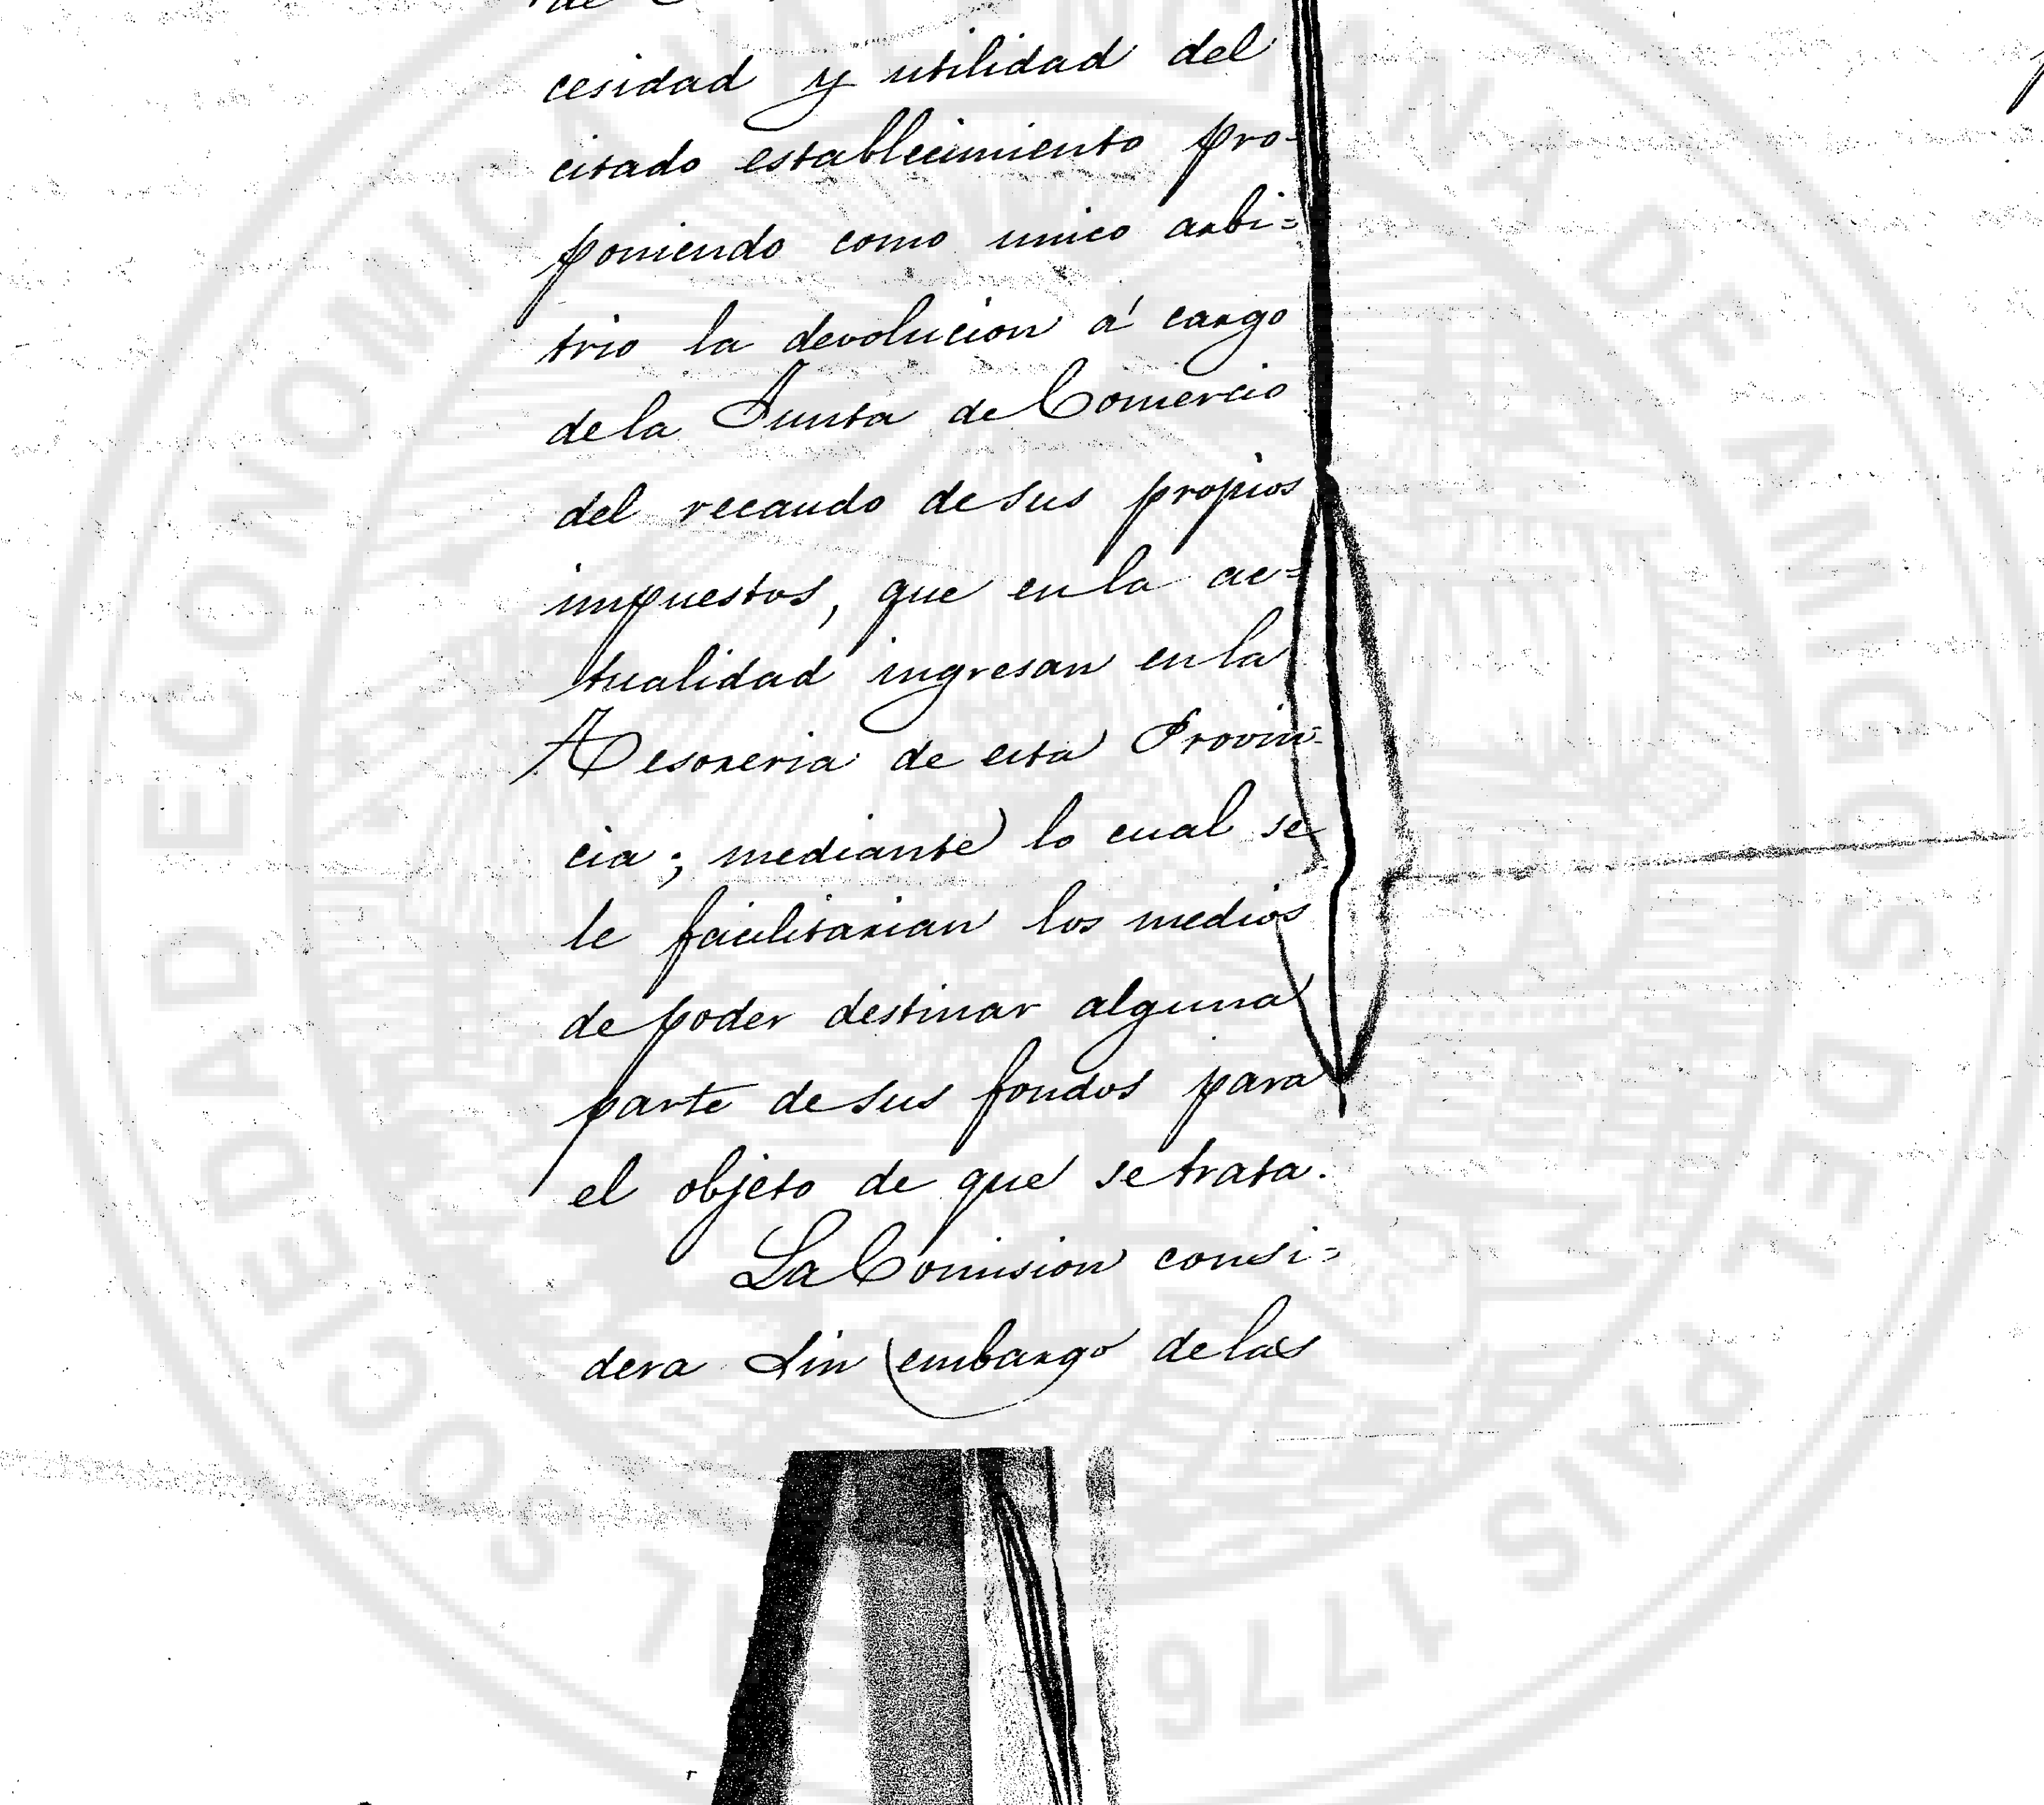 de
cesidad y utilidad del
citado establecimiento pro-
poniendo como unico arbi=
trio la devolucion á cargo
de la Junta de Comercio
del recaudo de sus propios
impuestos, que en la ac=
tualidad ingresan en la
Tesoreria de esta Provin-
cia; mediante lo cual se
le facilitarian los medios
de poder destinar alguna
parte de sus fondos para
el objeto de que se trata.
La Comision consi=
dera sin embargo de las
REAL SOCIEDAD ECONOMICA VALENCIANA DE AMIGOS DEL PAIS 1776